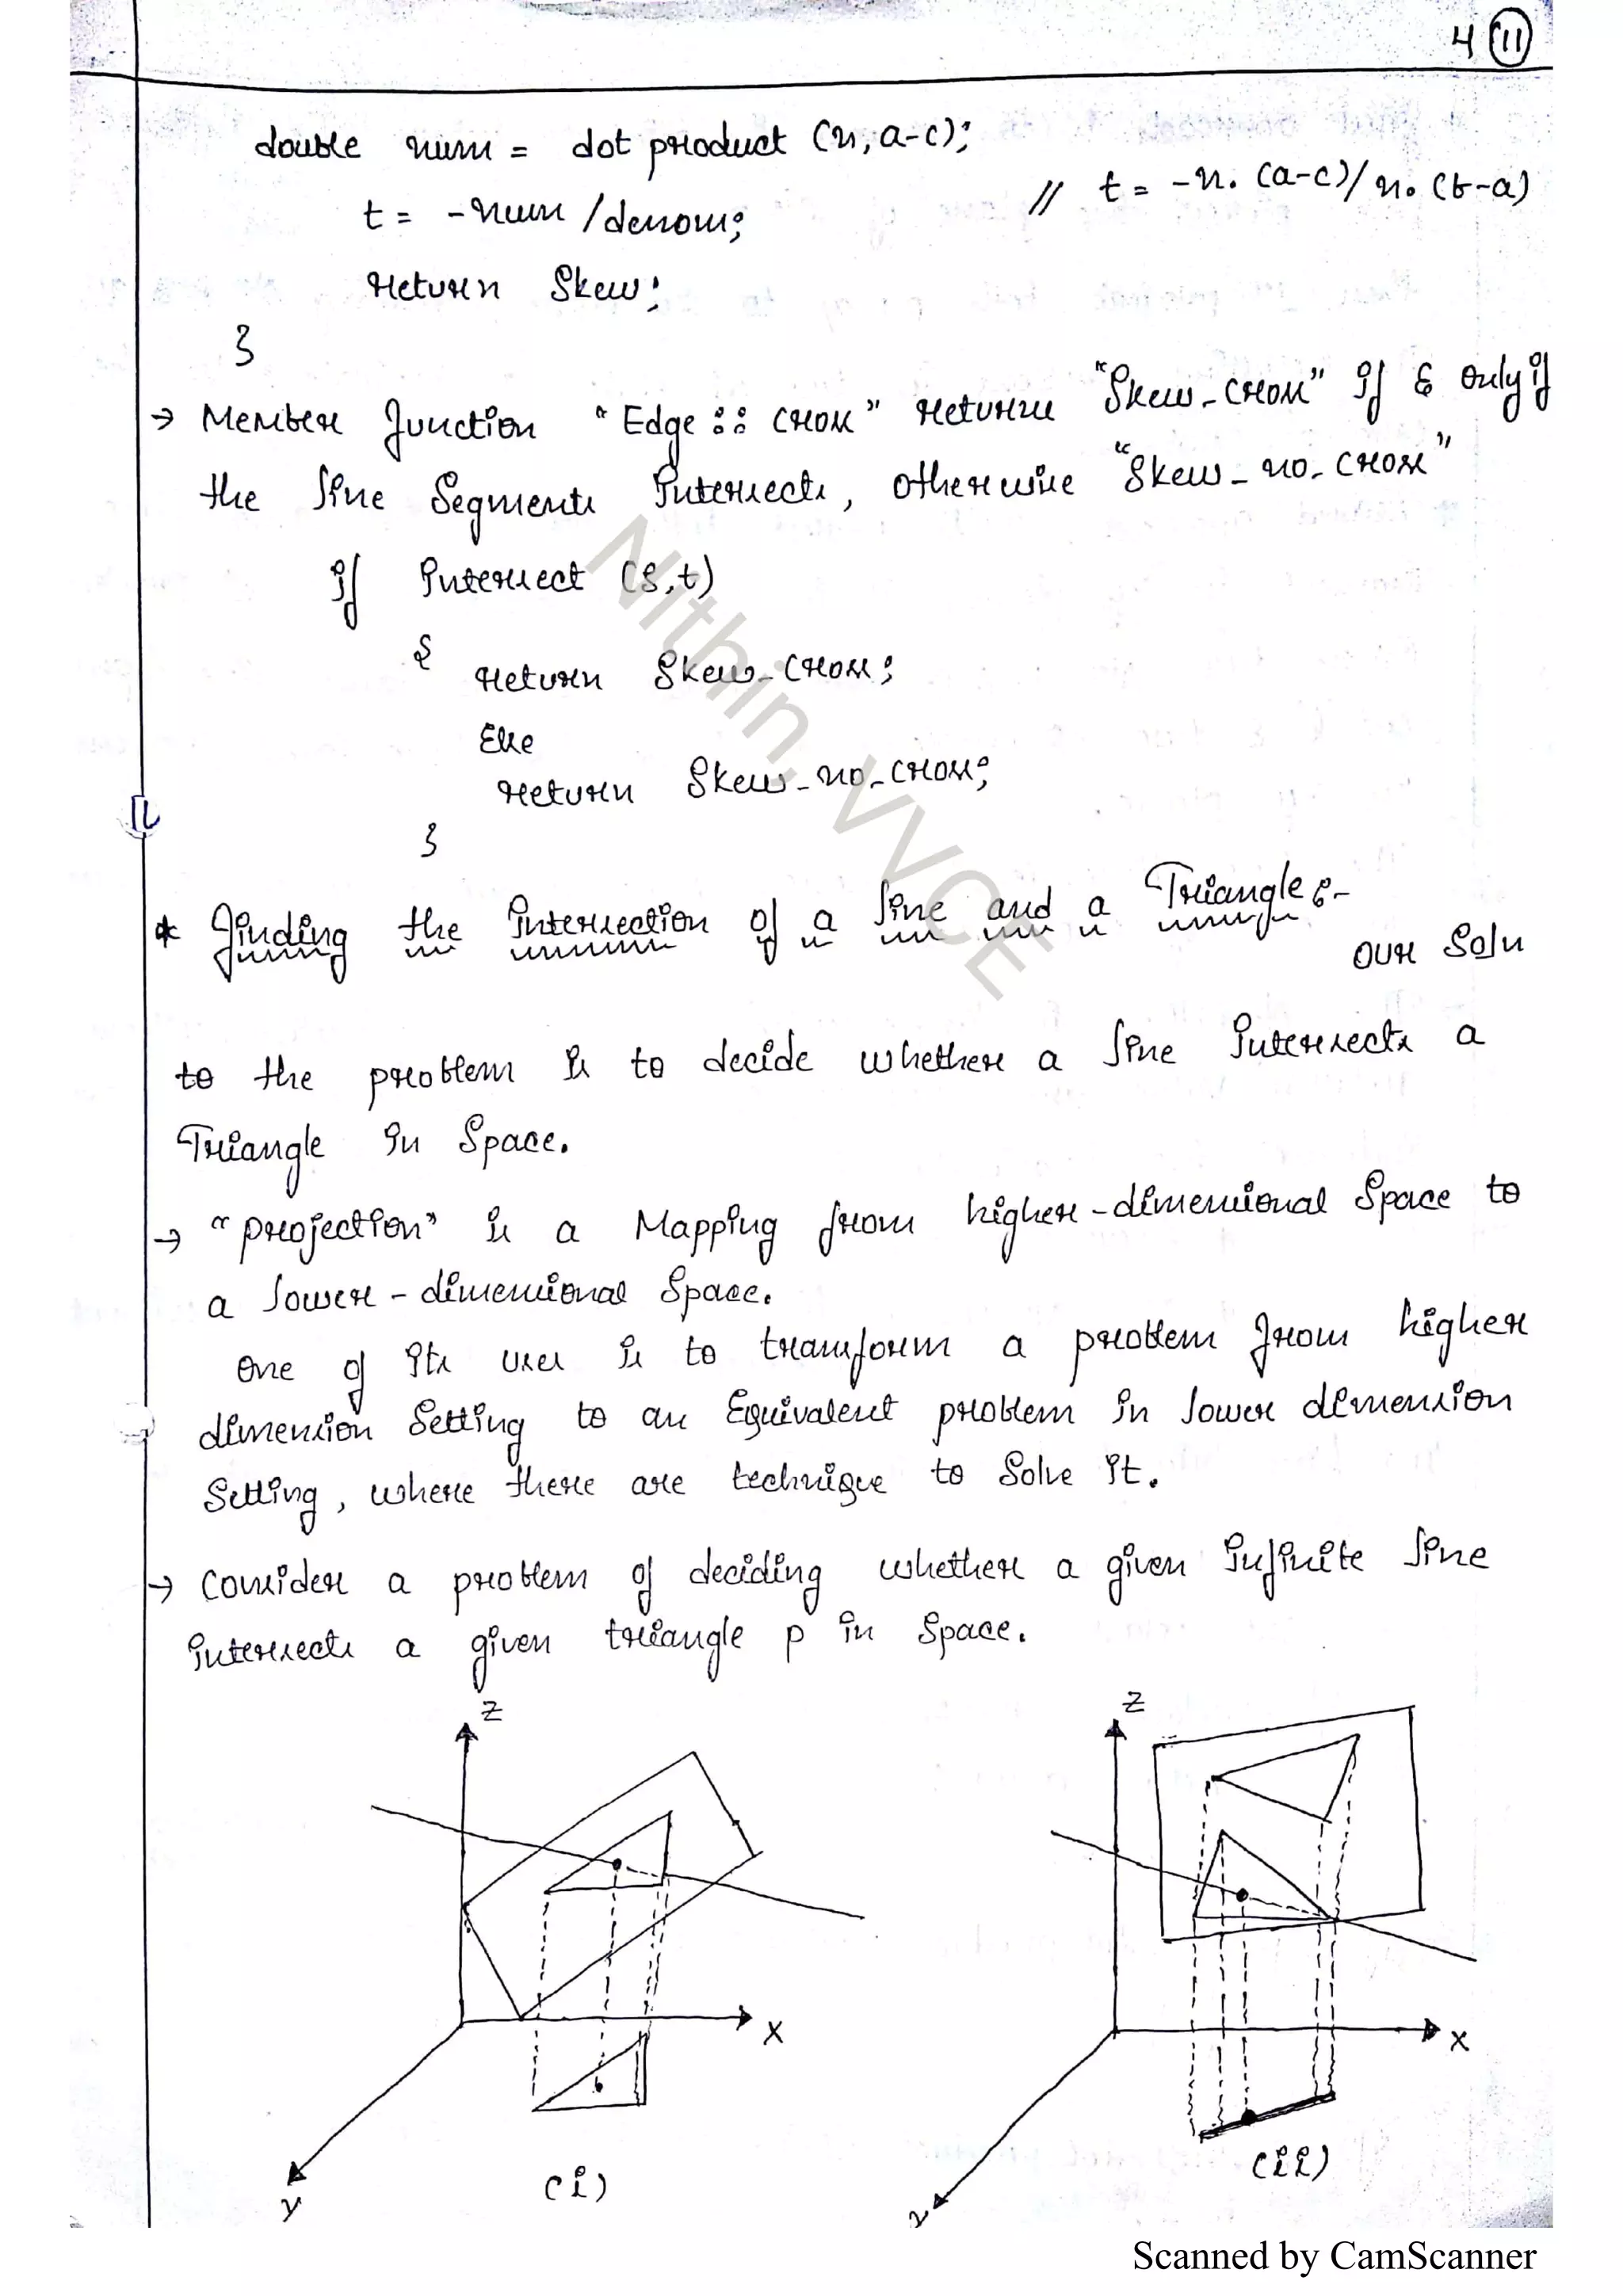 4 (11)
double num = dot product (n, a-c);
t = -num /denom; // t = -n. (a-c)/n. (b-a)
return Skew;
}
→ Member function "Edge :: cross" returns "Skew-cross" if & only if
the line segments intersects, otherwise "Skew-no-cross"
if intersect (s,t)
{
return Skew-cross;
Else
return Skew-no-cross;
}
* finding the intersection of a line and a Triangle:-
our Soln
to the problem is to decide whether a line intersects a
Triangle in Space.
→ "projection" is a Mapping from higher-dimensional Space to
a lower-dimensional Space.
One of its uses is to transform a problem from higher
dimension Setting to an Equivalent problem in lower dimension
Setting, where there are technique to Solve it.
→ consider a problem of deciding whether a given infinite line
intersects a given triangle p in Space.
Z
Z
X
X
Y
Y
(i)
(ii)
Nithin, VVCE
Scanned by CamScanner